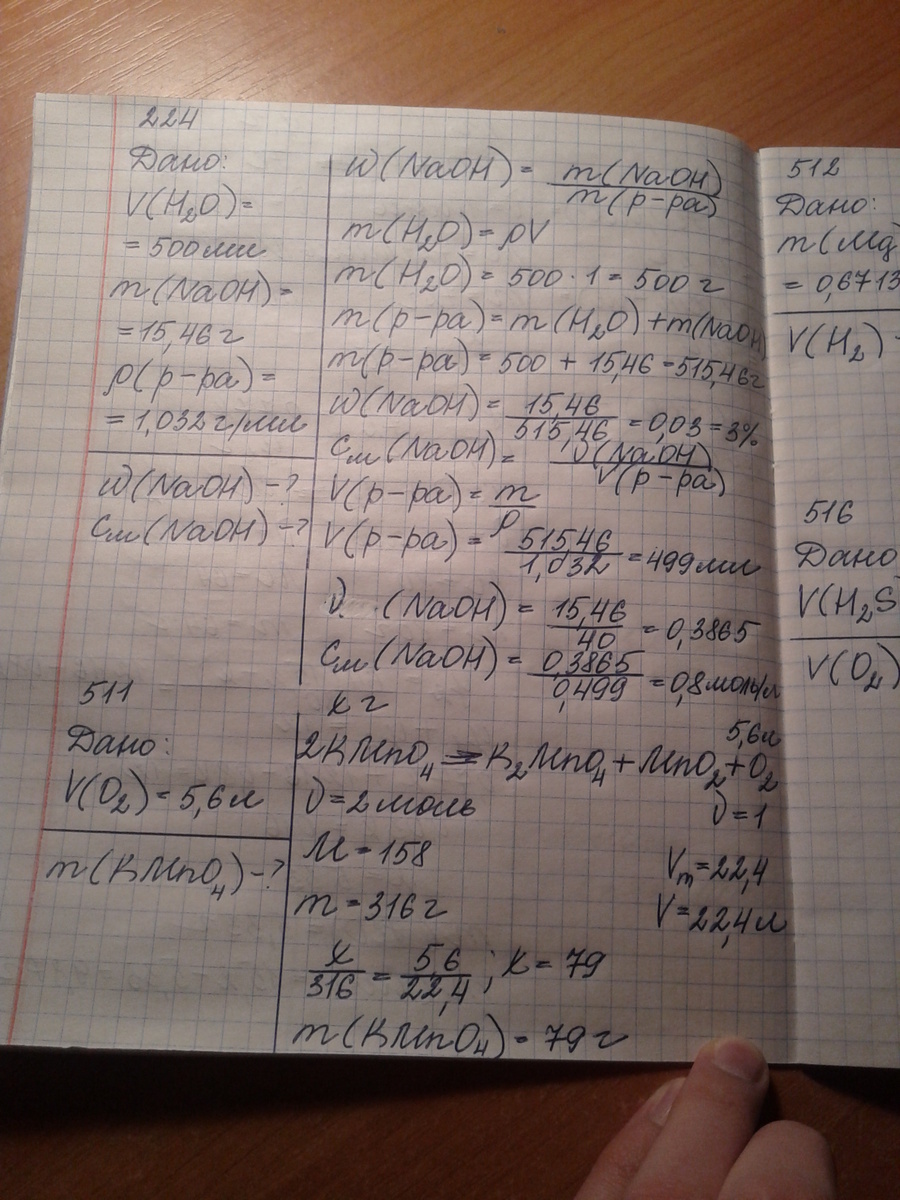 224
Дано:
V(H₂O)=
= 500 мл
m(NaOH)=
= 15,46 г
ρ(р-ра)=
= 1,032 г/мл
ω(NaOH) - ?
Cм(NaOH) - ?
ω(NaOH) = m(NaOH) / m(р-ра)
m(H₂O) = ρV
m(H₂O) = 500 · 1 = 500 г
m(р-ра) = m(H₂O) + m(NaOH)
m(р-ра) = 500 + 15,46 = 515,46 г
ω(NaOH) = 15,46 / 515,46 = 0,03 = 3%
Cм(NaOH) = ν(NaOH) / V(р-ра)
V(р-ра) = m / ρ
V(р-ра) = 515,46 / 1,032 = 499 мл
ν (NaOH) = 15,46 / 40 = 0,3865
Cм(NaOH) = 0,3865 / 0,499 = 0,8 моль/л
511
Дано:
V(O₂) = 5,6 л
m(KMnO₄) - ?
x г
5,6 л
2KMnO₄ = K₂MnO₄ + MnO₂ + O₂
ν = 2 моль
ν = 1
M = 158
Vm = 22,4
m = 316 г
V = 22,4 л
x / 316 = 5,6 / 22,4 ; x = 79
m(KMnO₄) = 79 г
512
Дано:
m(Mg)
= 0,6713
V(H₂) -
516
Дано
V(H₂S
V(O₂)